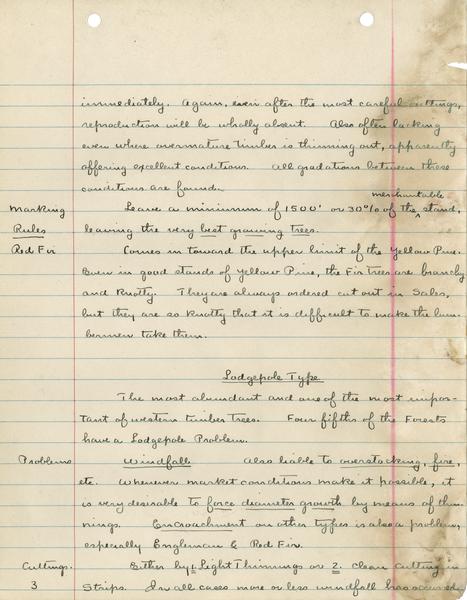 immediately. Again, even after the most careful cuttings,
reproduction will be wholly absent. Also often lacking
even where overmature timber is thinning out, apparently
offering excellent conditions. All gradations between these
conditions are found.
merchantable
Marking Leave a minimum of 1500' or 30% of the ^ stand,
Rules leaving the very best growing trees.
Red Fir Comes in toward the upper limit of the Yellow Pine.
Even in good stands of Yellow Pine, the Fir trees are branchy
and knotty. They are always ordered cut out in Sales,
but they are so knotty that it is difficult to make the lum-
bermen take them.
Lodgepole Type
The most abundant and one of the most impor-
tant of western timber trees. Four fifths of the Forests
have a Lodgepole Problem.
Problems Windfall Also liable to overstocking, fire,
etc. Wherever market conditions make it possible, it
is very desirable to force diameter growth by means of thin-
nings. Encroachment on other types is also a problem,
especially Engleman & Red Fir.
Cuttings. Either by 1. Light Thinnings or 2. Clean cutting in
3 Strips. In all cases more or less windfall has occurred,